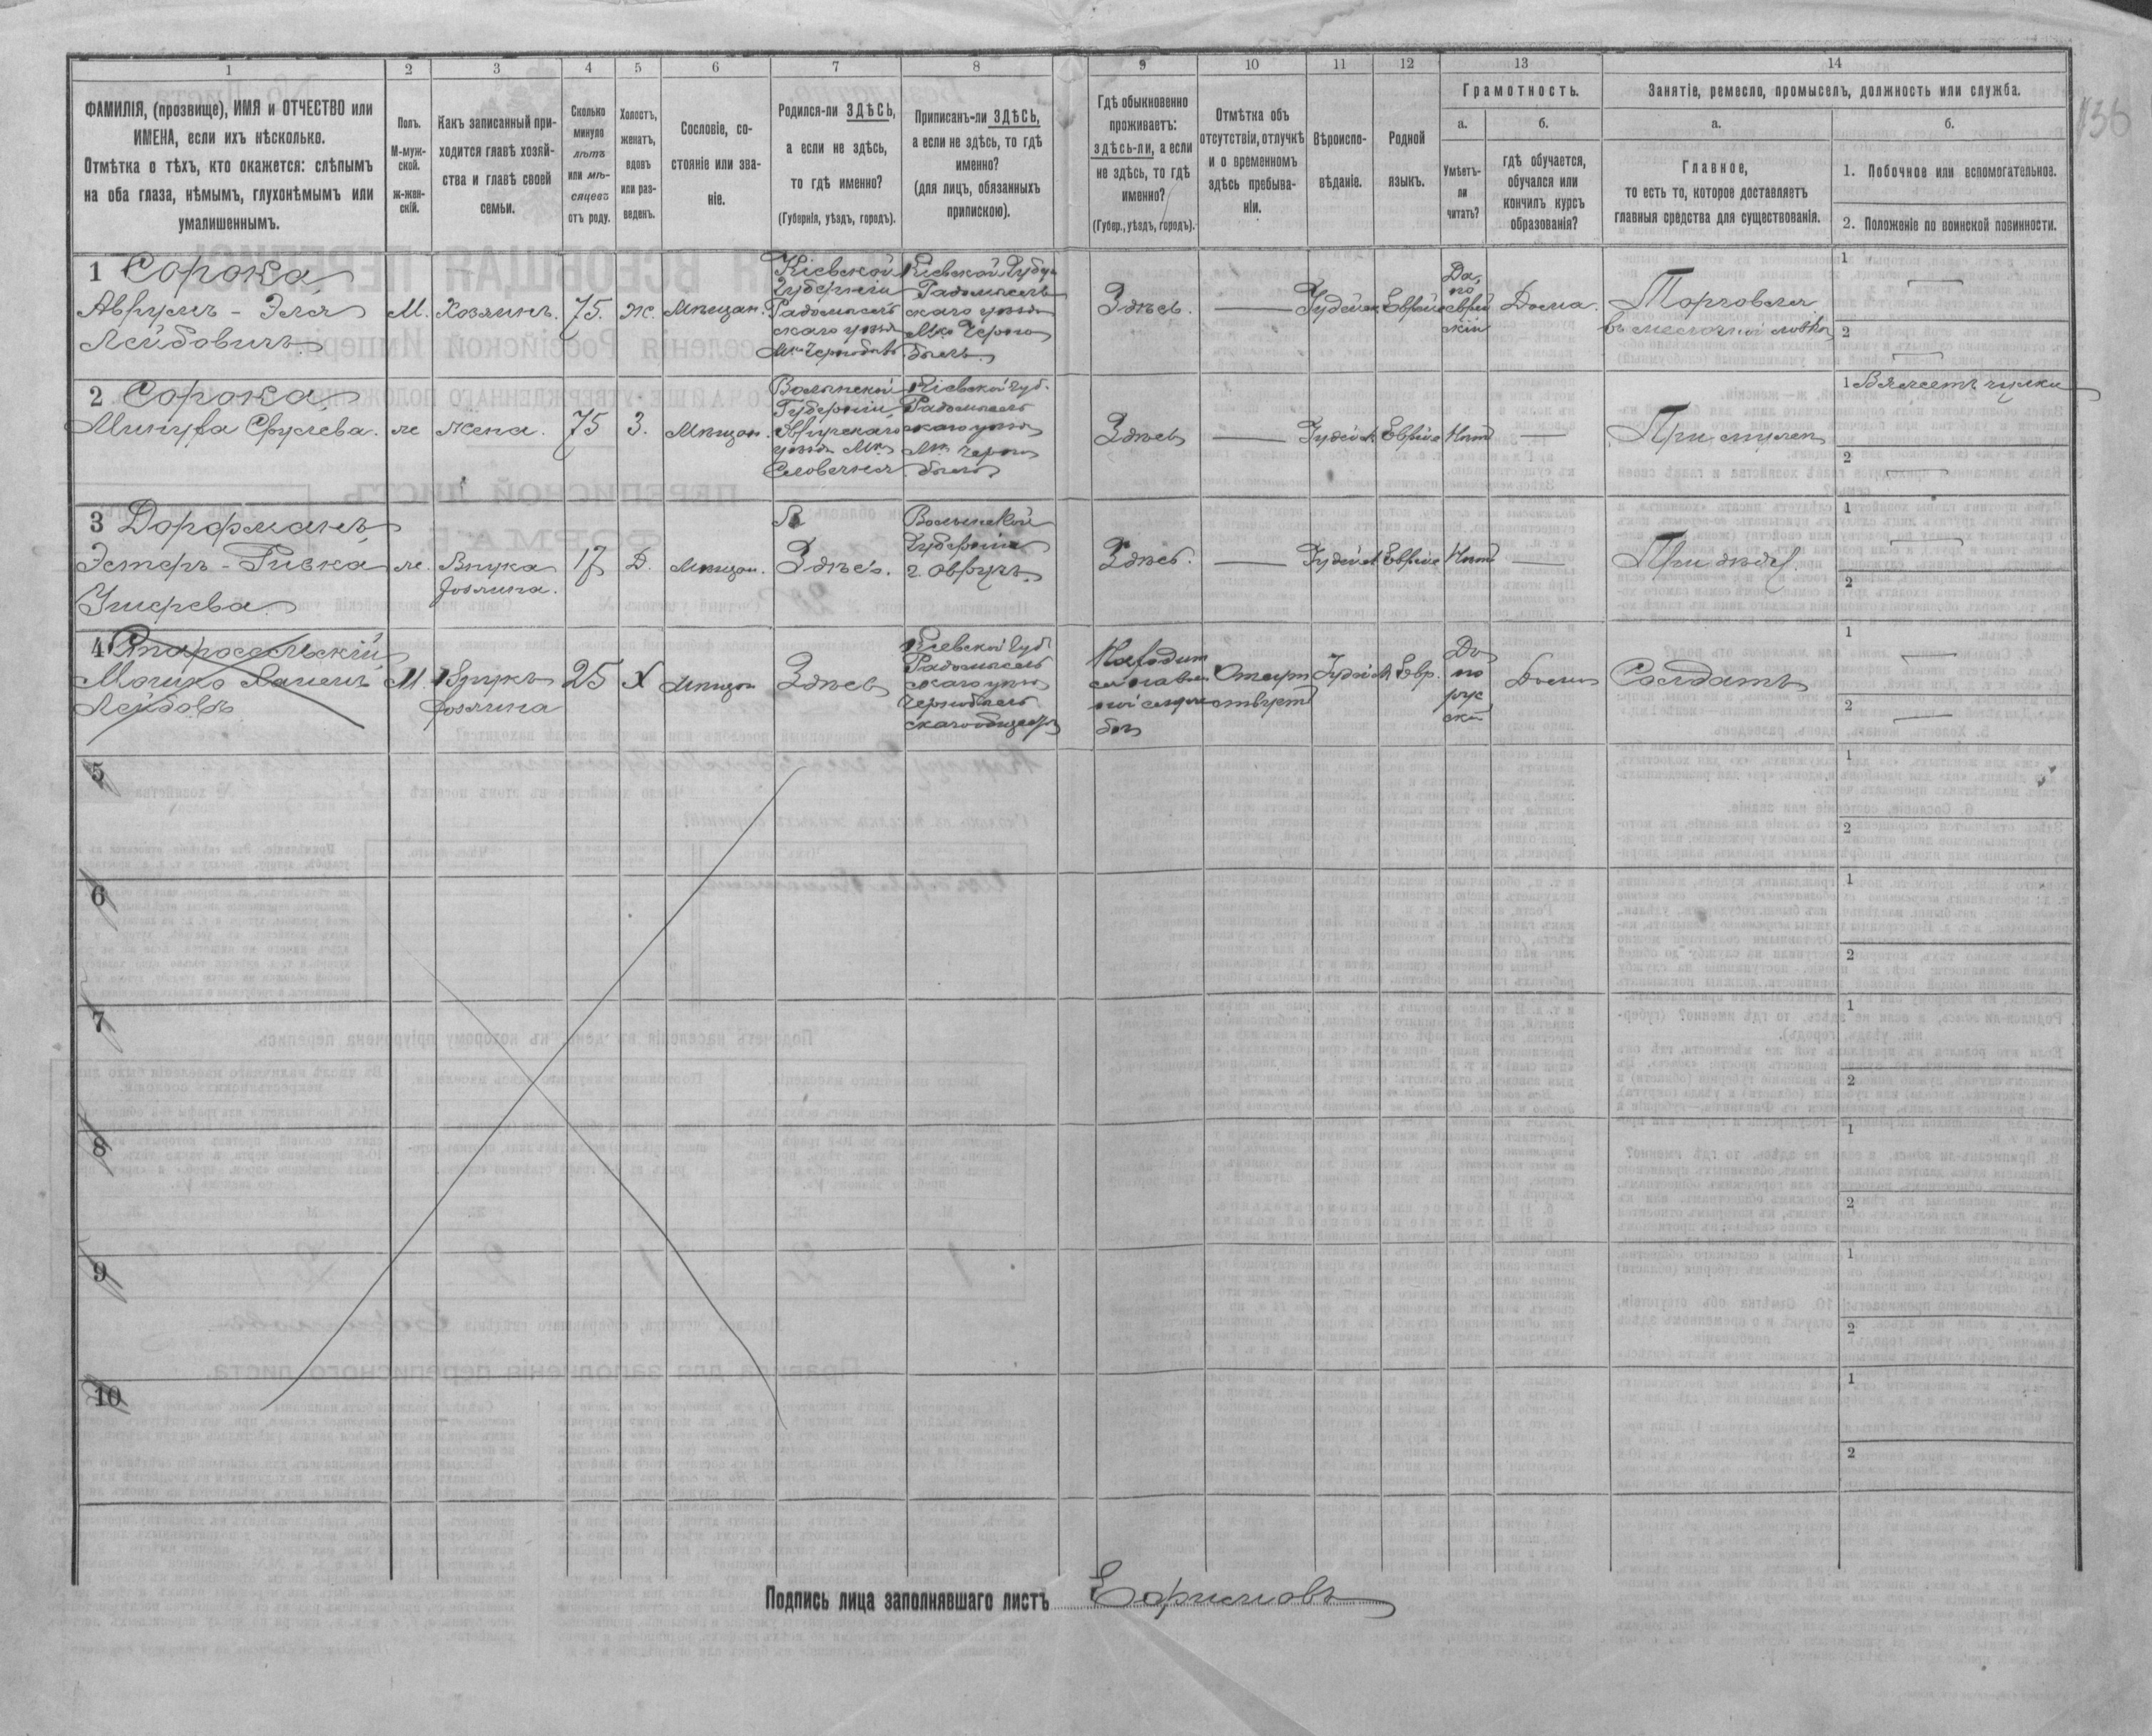 136
1 2 3 4 5 6 7 8 9 10 11 12 13 14
ФАМИЛІЯ, (прозвище), ИМЯ и ОТЧЕСТВО или
ИМЕНА, если ихъ нѣсколько.
Отмѣтка о тѣхъ, кто окажется: слѣпымъ
на оба глаза, нѣмымъ, глухонѣмымъ или
умалишеннымъ.
Полъ.
М-муж-
ской.
ж-жен-
скій.
Какъ записанный при-
ходится главѣ хозяй-
ства и главѣ своей
семьи.
Сколько
минуло
лѣтъ
или мѣ-
сяцевъ
отъ роду.
Холостъ,
женатъ,
вдовъ
или раз-
веденъ.
Сословіе, со-
стояніе или зва-
ніе.
Родился-ли ЗДѢСЬ,
а если не здѣсь,
то гдѣ именно?
(Губернія, уѣздъ, городъ).
Приписанъ-ли ЗДѢСЬ,
а если не здѣсь, то гдѣ
именно?
(для лицъ, обязанныхъ
припискою).
Гдѣ обыкновенно
проживаетъ:
здѣсь-ли, а если
не здѣсь, то гдѣ
именно?
(Губер., уѣздъ, городъ).
Отмѣтка объ
отсутствіи, отлучкѣ
и о временномъ
здѣсь пребыва-
ніи.
Вѣроиспо-
вѣданіе.
Родной
языкъ.
Грамотность.
а.
Умѣетъ-
ли
читать?
б.
гдѣ обучается,
обучался или
кончилъ курсъ
образованія?
Занятіе, ремесло, промыселъ, должность или служба.
а.
Главное,
то есть то, которое доставляетъ
главныя средства для существованія.
б.
1. Побочное или вспомогательное.
2. Положеніе по воинской повинности.
1 Сорока
Аврумъ - Эля
Лейбовичъ
М.
Хозяинъ.
75.
Ж.
Мѣщан.
Кіевской
Губерніи
Радомысль
скаго уѣзда
М. Чернобыль
Кіевской Губер
Радомысль
скаго уѣзда
М. Черно
быль
Здѣсь.
—
Іудейск
Еврейс
Да,
по
еврей
скій
Дома.
Торговля
въ мелочной лавке
1 —
2 —
2 Сорока
ж
Жена.
75
З.
Мѣщан.
Волынской
Губерніи
Овручскаго
уѣзда М.
Словечна
Кіевской Губ.
Радомысль
скаго уѣзда
М. Черно
быль
Здѣсь
—
Іудейск
Еврейс
Нѣтъ
—
При мужѣ
1 Вяжетъ чулки
2 —
3 Дорфманъ
Эстеръ - Ривка
Ушерева
ж.
Внука
хозяина.
17
Д.
Мѣщан.
Здѣсь.
Волынской
Губерніи
г. Овручъ.
Здѣсь.
—
Іудейск
Еврейс
Нѣтъ
—
При дѣдѣ.
1 —
2 —
4 Старосельскій
Мошко
Лейбовъ
М.
Внукъ
хозяина
25
Х
Мѣщан
Здѣсь
Кіевской Губ
Радомысль
скаго уѣзда
Чернобыль
скаго общества
Находит
ся на воен
ной служ
бѣ
Іудейск
Евр.
Да
по
рус
ски
Дома
Солдатъ
1 —
2 —
5
1
2
6
1
2
7
1
2
8
1
2
9
1
2
10
1
2
Подпись лица заполнявшаго листъ